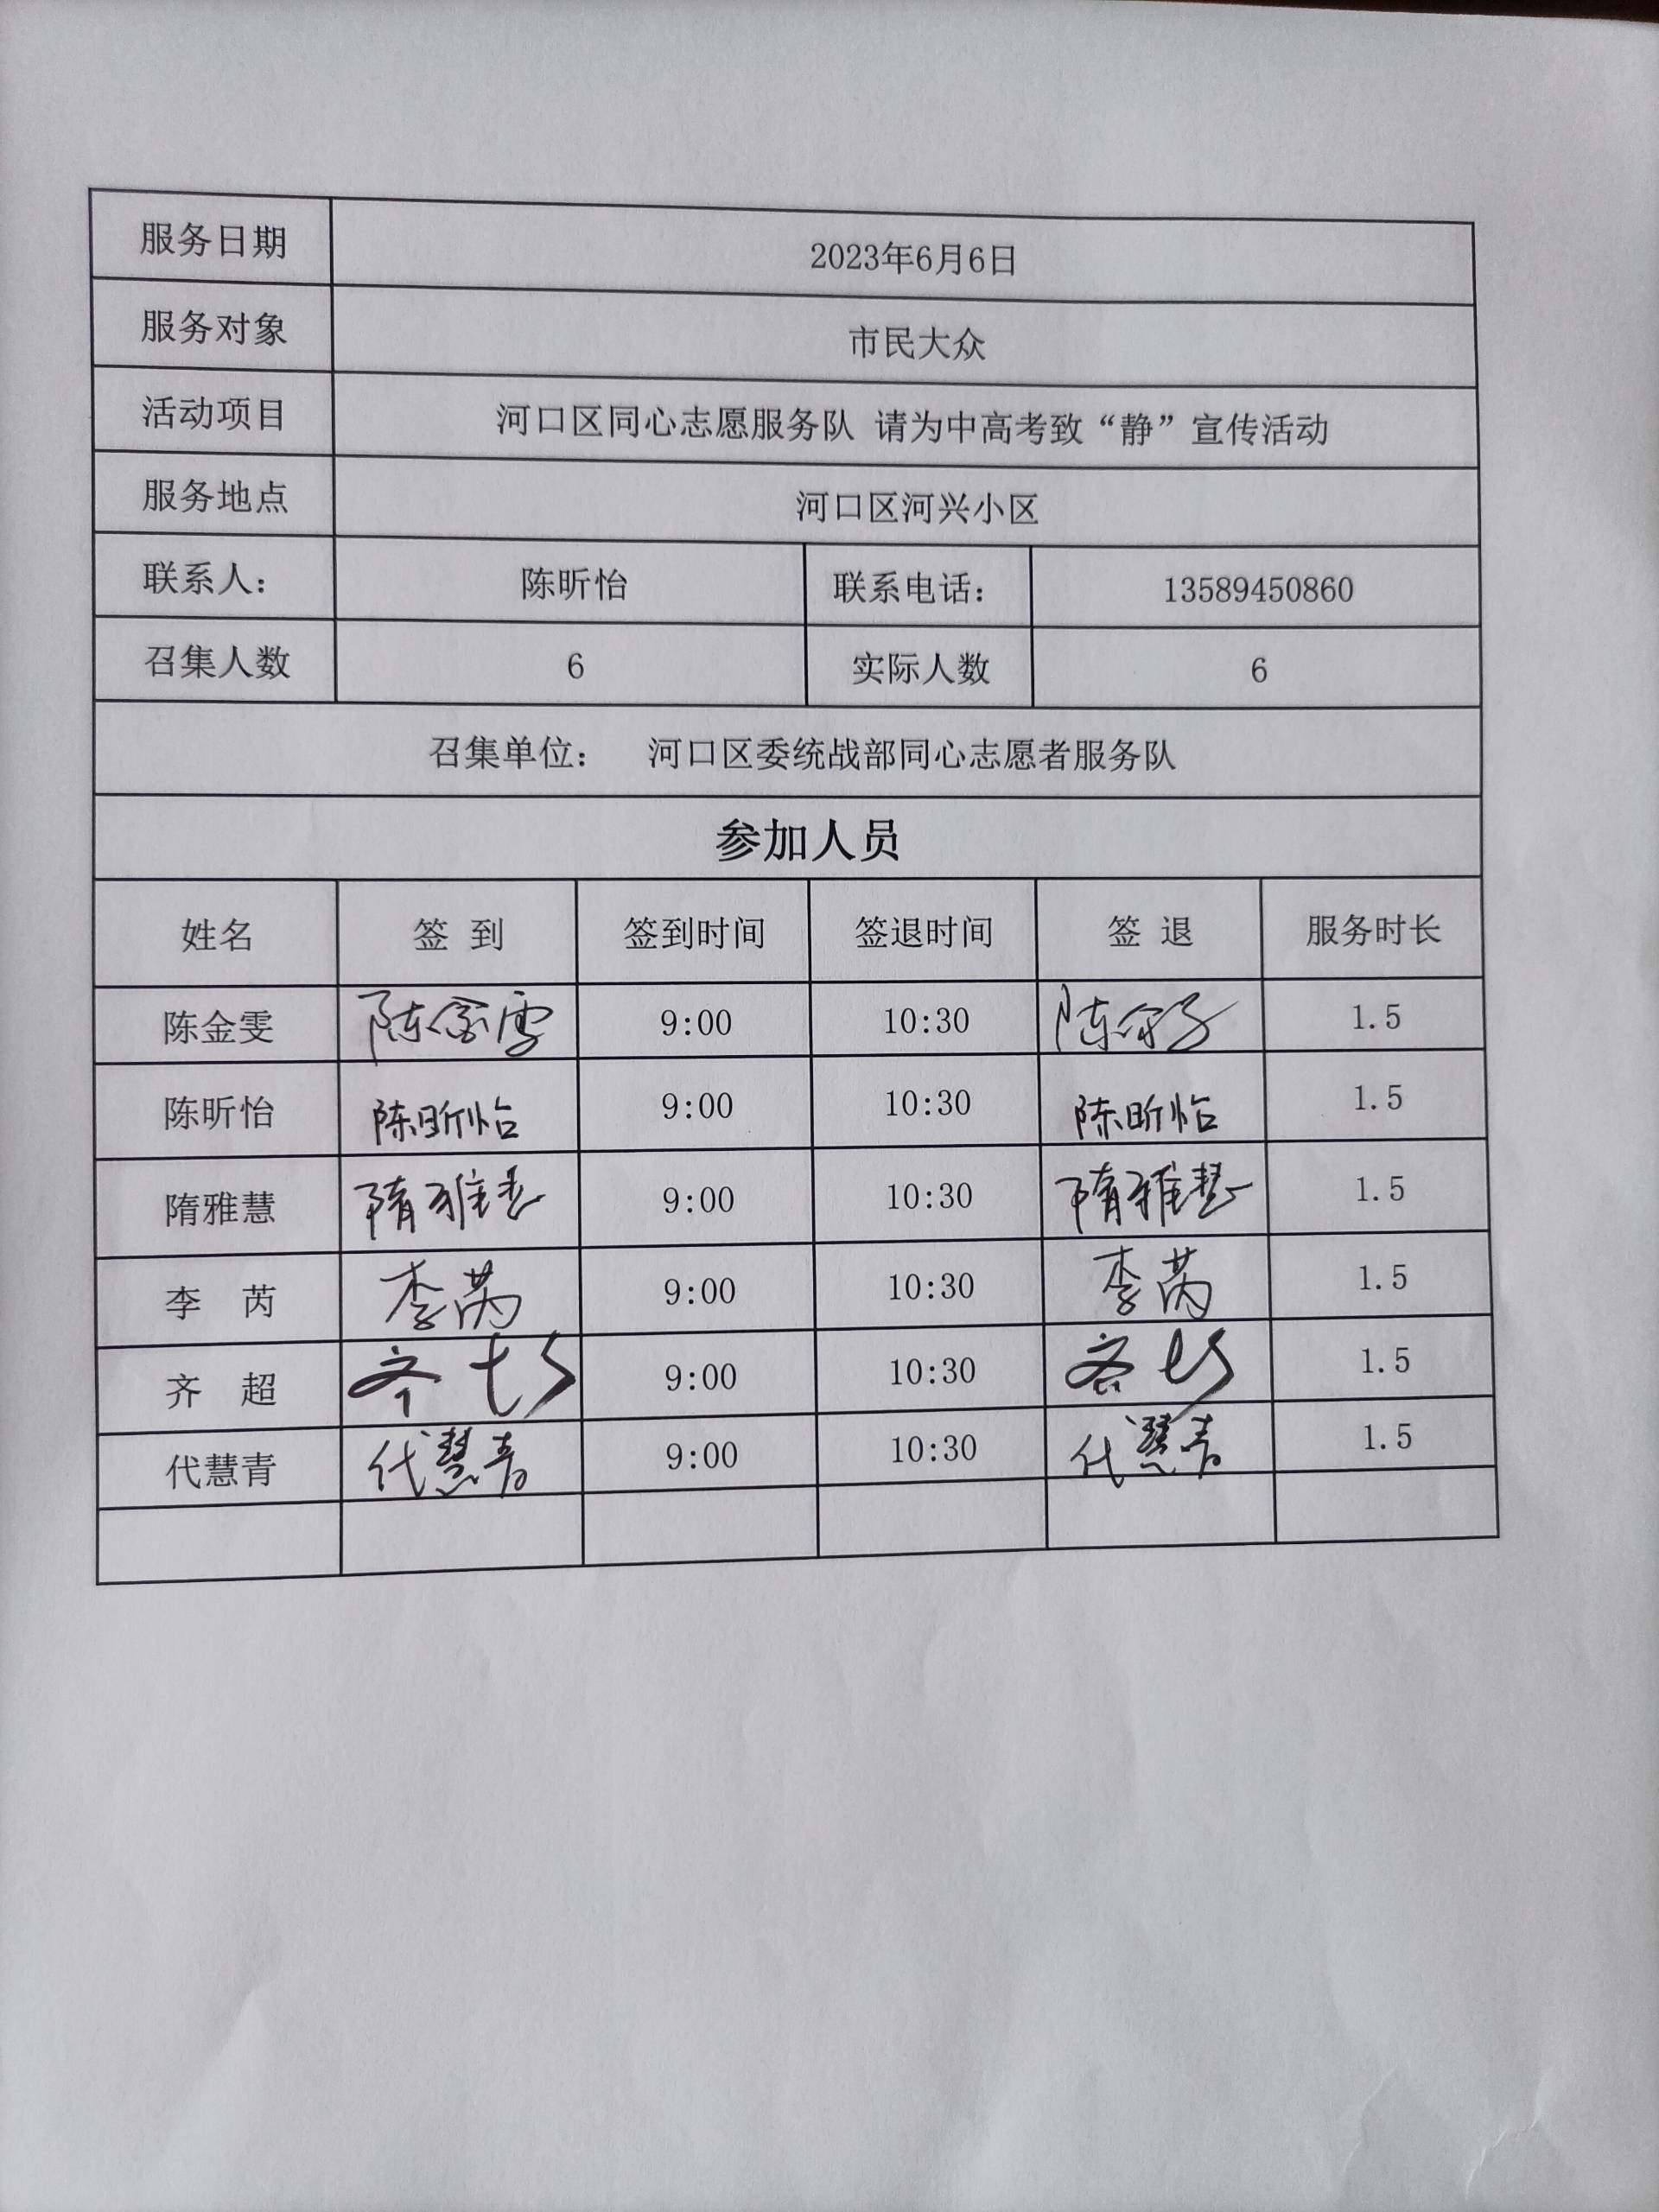 服务日期 2023年6月6日
服务对象 市民大众
活动项目 河口区同心志愿服务队 请为中高考致“静”宣传活动
服务地点 河口区河兴小区
联系人： 陈昕怡 联系电话： 13589450860
召集人数 6 实际人数 6
召集单位： 河口区委统战部同心志愿者服务队
参加人员
姓名 签 到 签到时间 签退时间 签 退 服务时长
陈金雯 陈金雯 9:00 10:30 陈金雯 1.5
陈昕怡 陈昕怡 9:00 10:30 陈昕怡 1.5
隋雅慧 隋雅慧 9:00 10:30 隋雅慧 1.5
李 芮 李芮 9:00 10:30 李芮 1.5
齐 超 齐超 9:00 10:30 齐超 1.5
代慧青 代慧青 9:00 10:30 代慧青 1.5